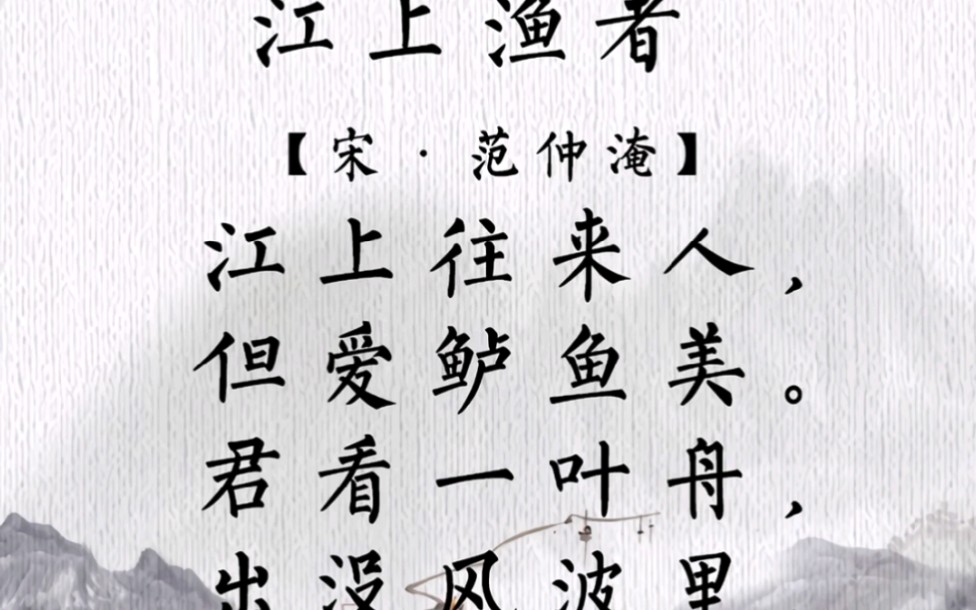 江上渔者
【宋·范仲淹】
江上往来人，
但爱鲈鱼美。
君看一叶舟，
出没风波里